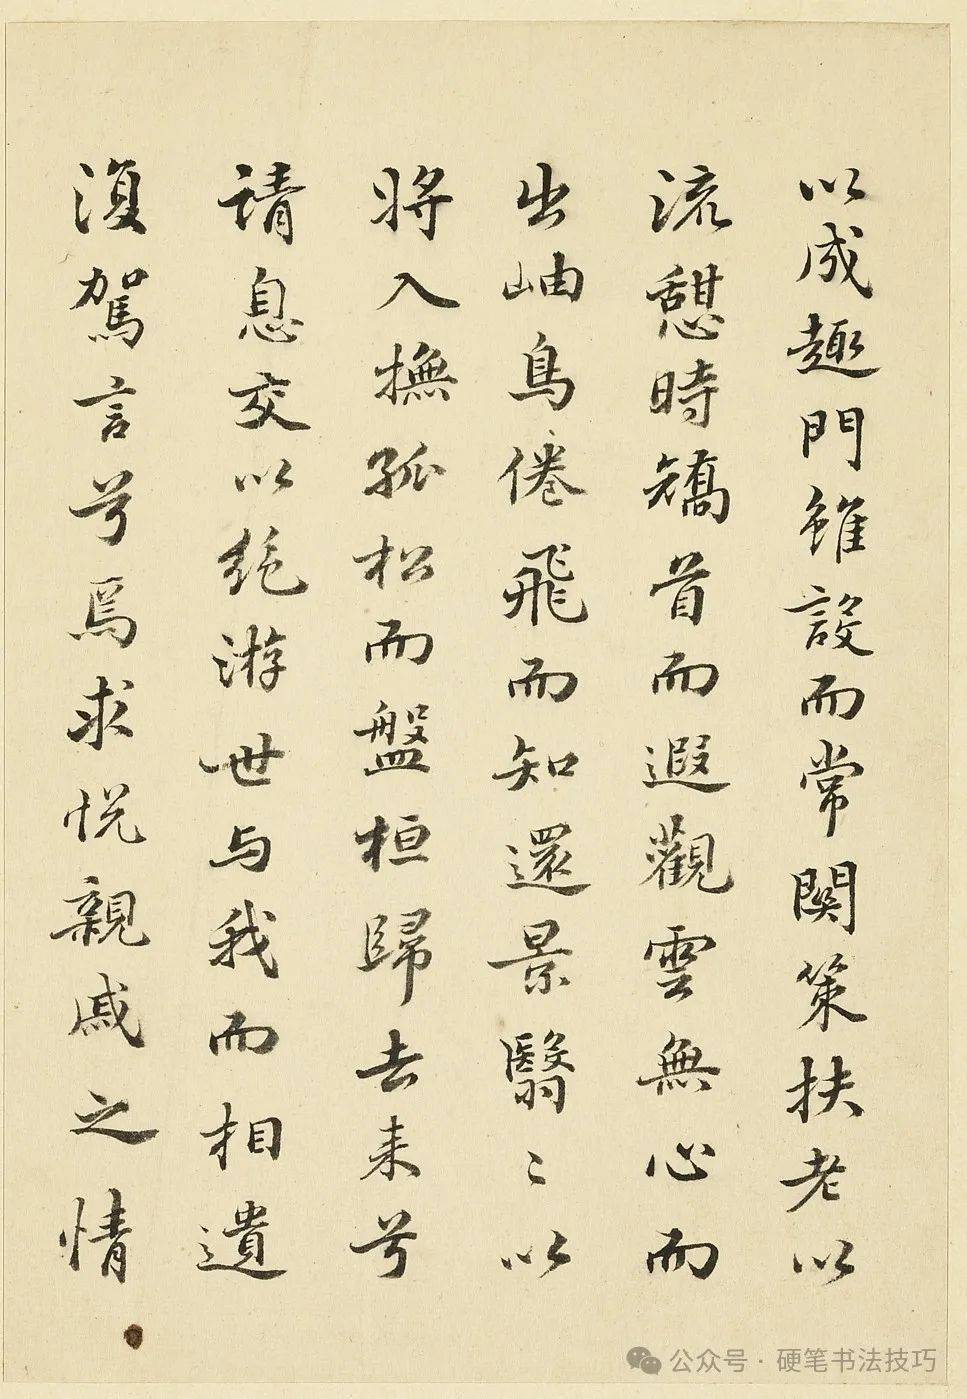 以成趣門雖設而常関策扶老以
流憇時矯首而遐觀雲無心而
出岫鳥倦飛而知還景翳〻以
將入撫孤松而盤桓歸去来兮
請息交以絶游世与我而相遺
復駕言兮焉求悦親戚之情
公众号·硬笔书法技巧